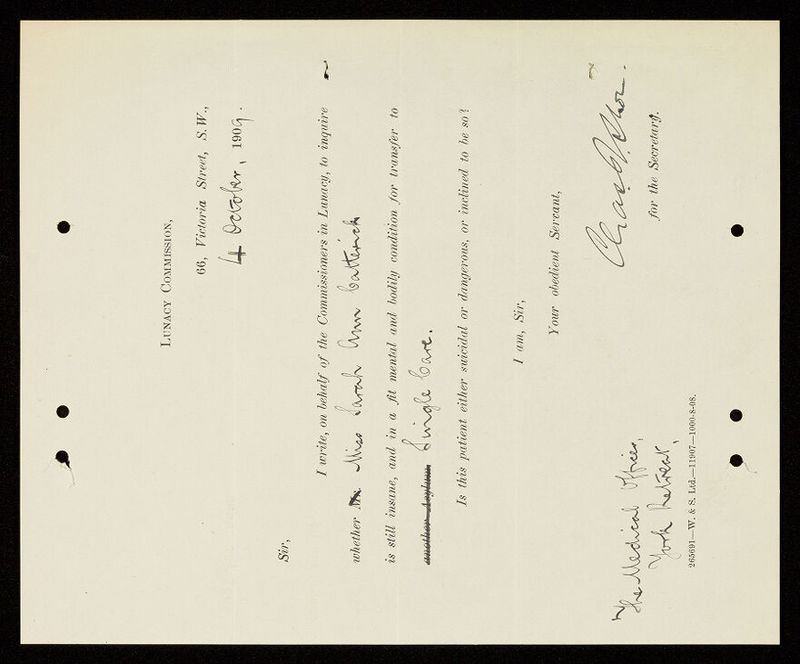 LUNACY COMMISSION,
66, Victoria Street, S.W.,
4 October, 1909.
Sir,
I write, on behalf of the Commissioners in Lunacy, to inquire
whether Mr. Miss Sarah Ann Catterick
is still insane, and in a fit mental and bodily condition for transfer to
another Asylum Single Care.
Is this patient either suicidal or dangerous, or inclined to be so?
I am, Sir,
Your obedient Servant,
for the Secretary.
The Medical Officer,
York Retreat,
265691—W. & S. Ltd.—11907—1000-8-08.